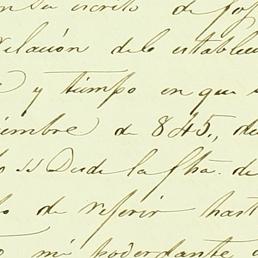 su escrito de fof
elación dela establec
y tiempo en que s
iembre de 845,, de
lo 11 Desde la fha. de
lo de referir hast
mi poderdante